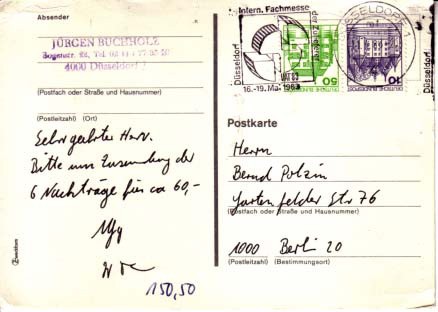 Absender
JÜRGEN BUCHHOLZ
4000 Düsseldorf
(Postfach oder Straße und Hausnummer)
(Postleitzahl) (Ort)
Sehr geehrter Herr.
Bitte um Zusendung der
6 Nachträge für ca 60,-
Mfg
150,50
Intern. Fachmesse
Düsseldorf
16.-19. Mai 1983
DÜSSELDORF 1
50
DEUTSCHE BUNDESPOST
10
DEUTSCHE BUNDESPOST
Düsseldorf
Postkarte
Herrn
Bernd Polzin
Gartenfelder Str 76
(Postfach oder Straße und Hausnummer)
1000 Berlin 20
(Postleitzahl) (Bestimmungsort)